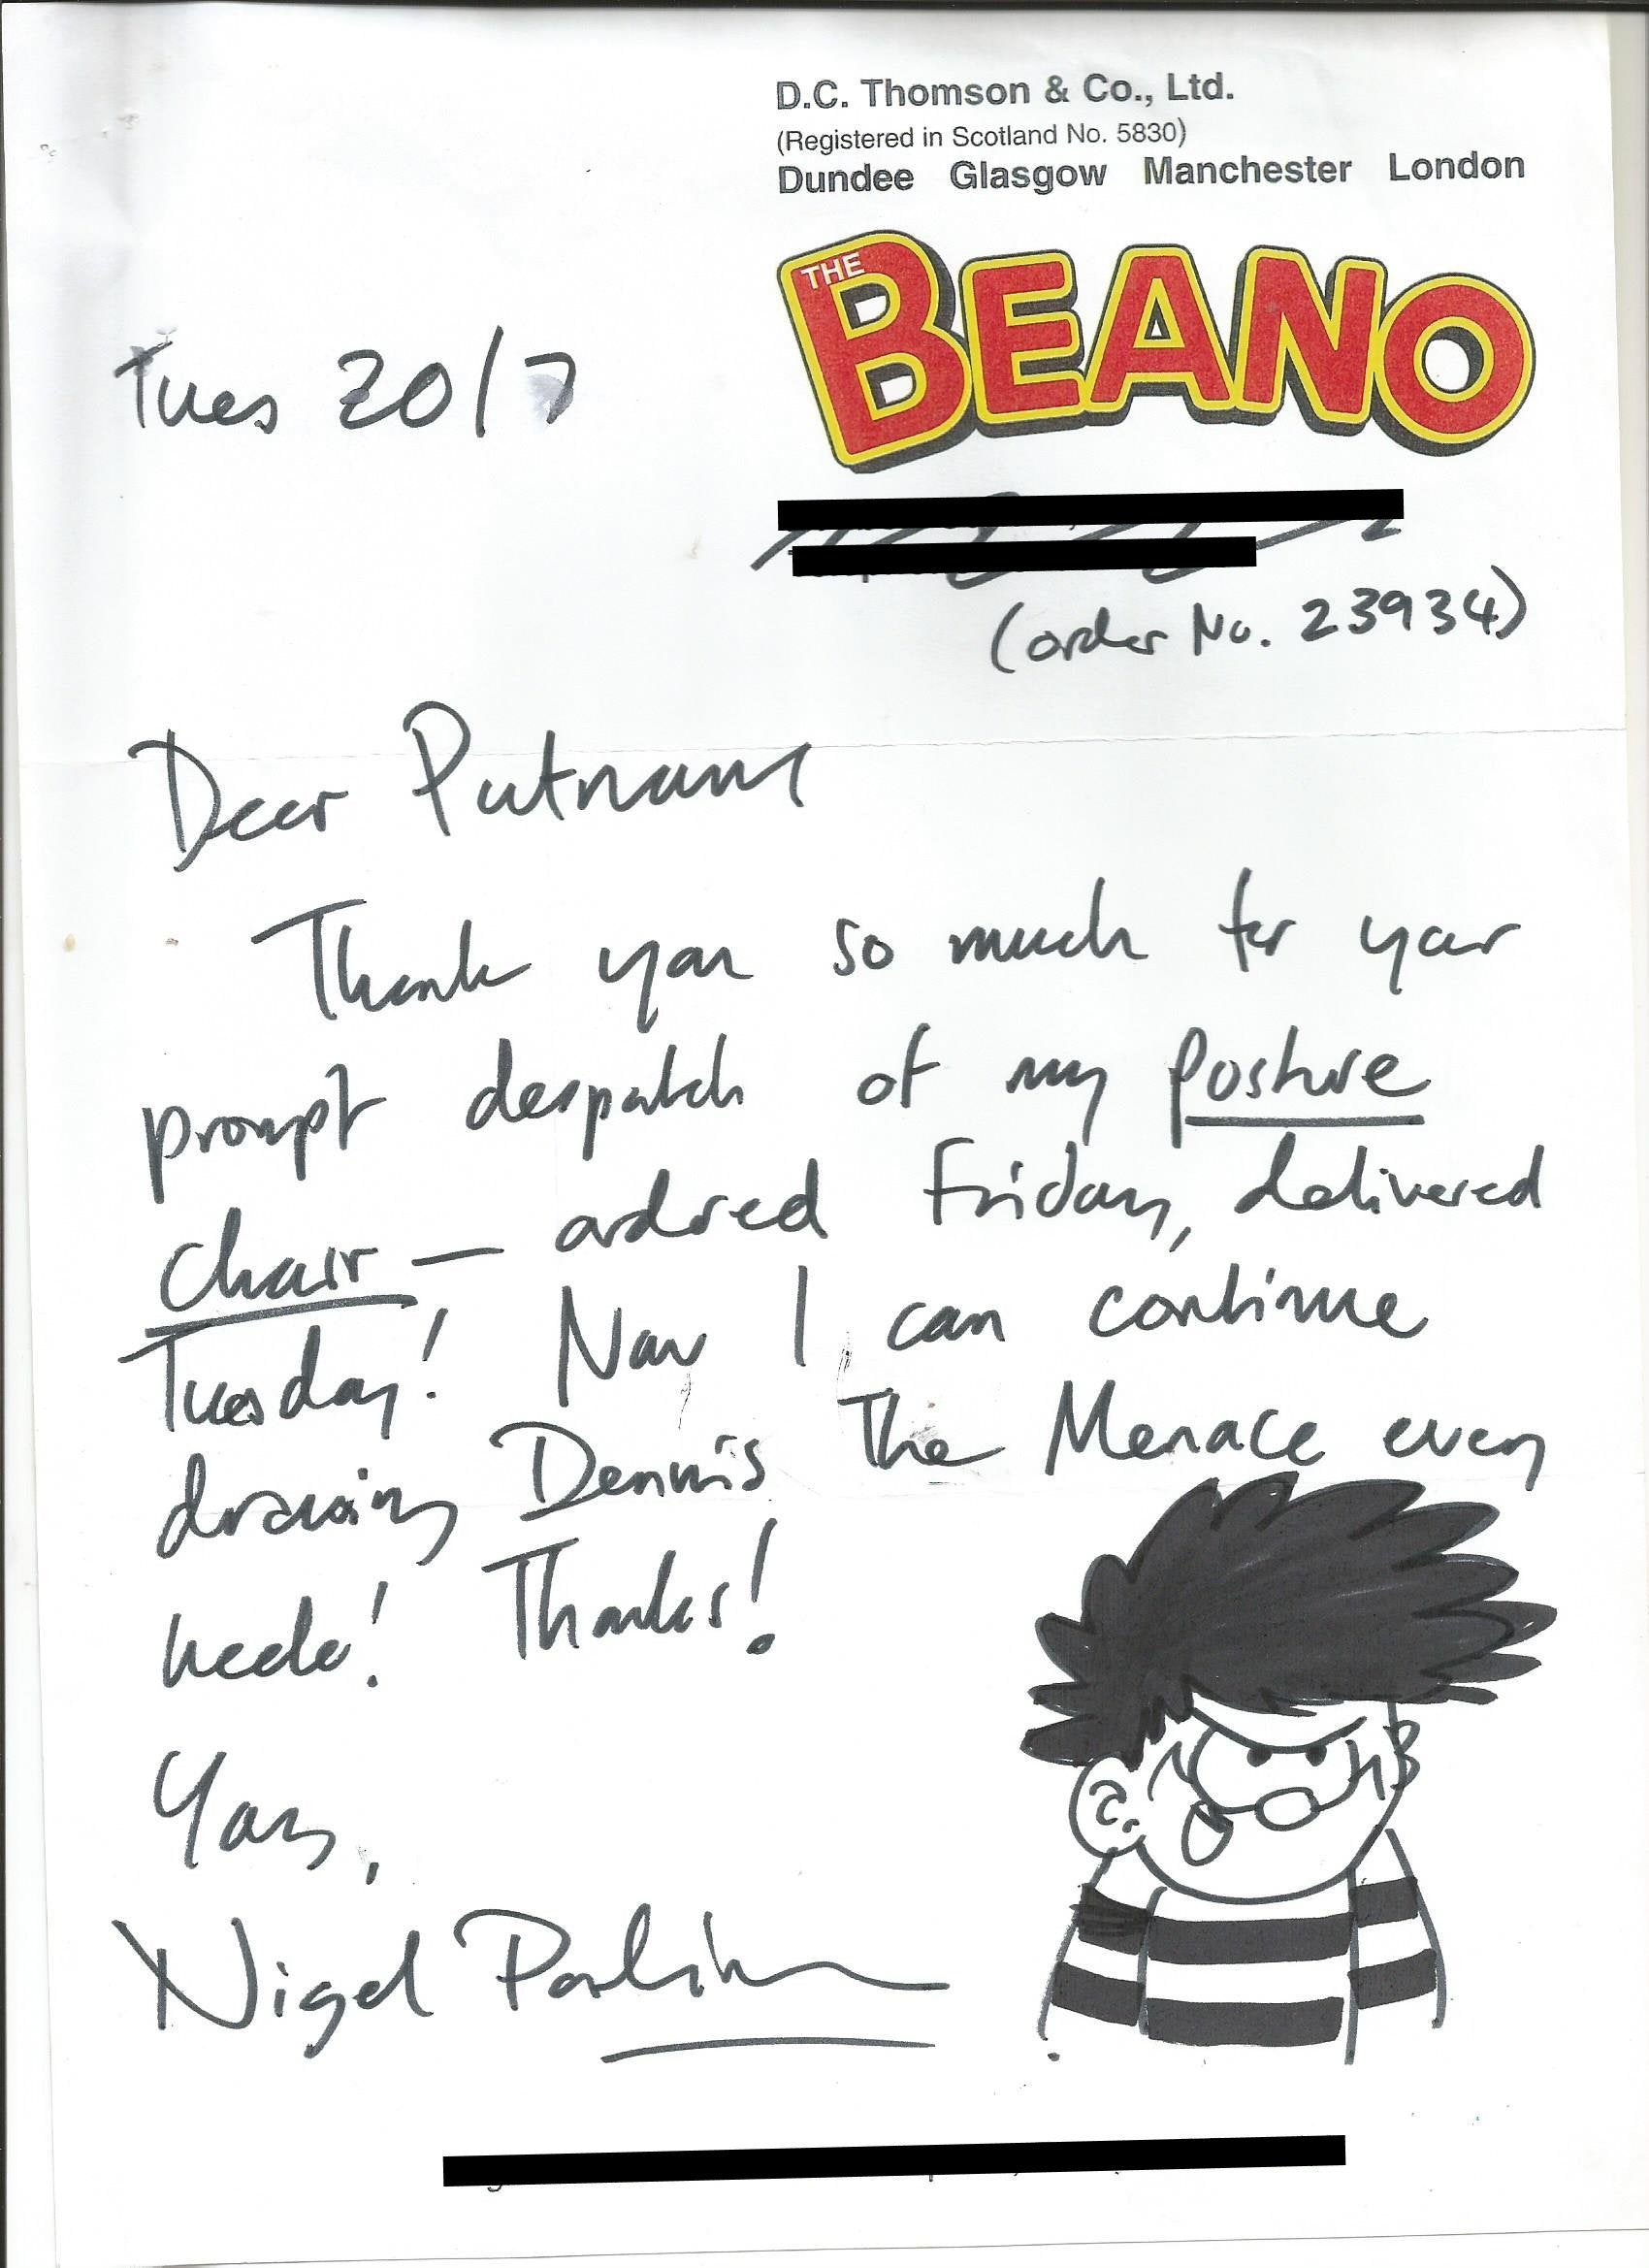 D.C. Thomson & Co., Ltd.
(Registered in Scotland No. 5830)
Dundee Glasgow Manchester London
THE BEANO
Tues 20/7
(order No. 23934)
Dear Putnam
Thank you so much for your
prompt despatch of my posture
chair — ordered Friday, delivered
Tuesday! Now I can continue
drawing Dennis The Menace every
week! Thanks!
Yours,
Nigel Parkinson